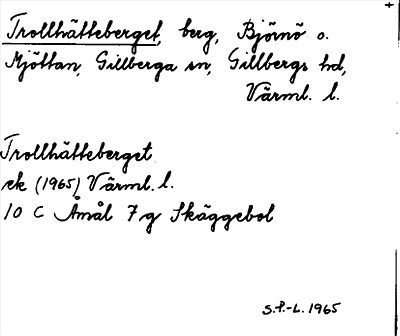 Trollhätteberget, berg, Björnö o.
Mjöttan, Gillberga sn, Gillbergs hd,
Värml. l.
Trollhätteberget
ek (1965) Värml. l.
10 C Åmål 7 g Skäggebol
S.P.-L. 1965